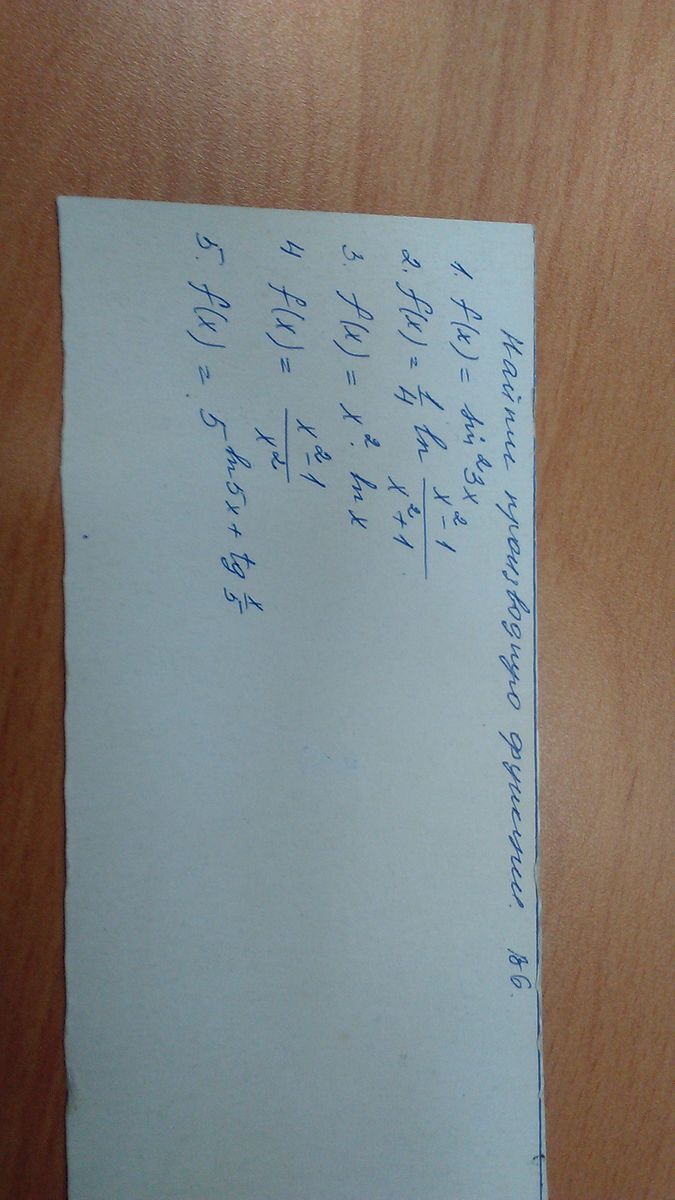 Найти производную функции. в6.
1. f(x) = sin²3x
2. f(x) = 1/4 ln (x²-1)/(x²+1)
3. f(x) = x² · ln x
4 f(x) = (x²-1)/x²
5. f(x) = 5^(ln5x + tg x/5)